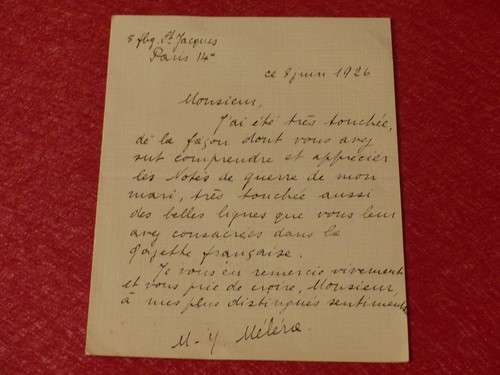 8 fbg. St Jacques
Paris 14e
ce 8 juin 1926
Monsieur,
J'ai été très touchée,
de la façon dont vous avez
sut comprendre et apprécier
les Notes de guerre de mon
mari, très touchée aussi
des belles lignes que vous leur
avez consacrées dans la
gazette française.
Je vous en remercie vivement
et vous prie de croire, Monsieur,
à mes plus distingués sentiments
M-Y. Méléra